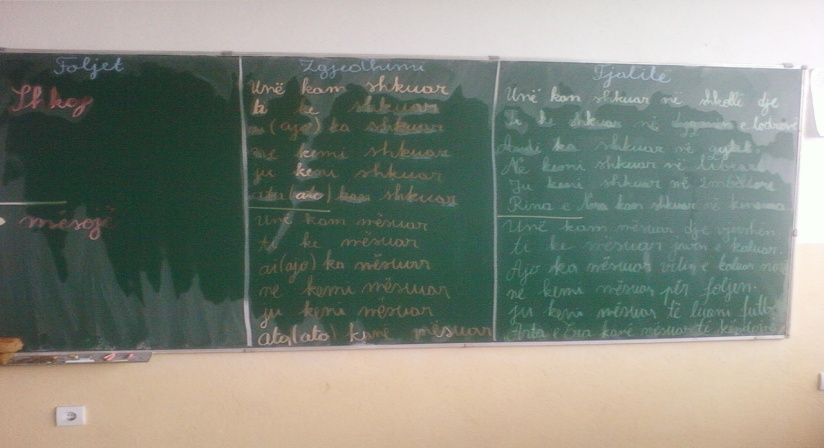 Foljet
Shkoj
mësojë
Zgjedhimi
Unë kam shkuar
ti ke shkuar
ai (ajo) ka shkuar
ne kemi shkuar
ju keni shkuar
ata (ato) kanë shkuar
Unë kam mësuar
ti ke mësuar
ai (ajo) ka mësuar
ne kemi mësuar
ju keni mësuar
ata (ato) kanë mësuar
Fjalitë
Unë kam shkuar në shkollë dje
Ti ke shkuar në e lodrave
ka shkuar në
Ne kemi shkuar në
Ju keni shkuar në
Rina e kan shkuar në kinema
Unë kam mësuar dje
ti ke mësuar javën e kaluar.
Ajo ka mësuar
ne kemi mësuar për foljen.
ju keni mësuar të luani
e kanë mësuar të